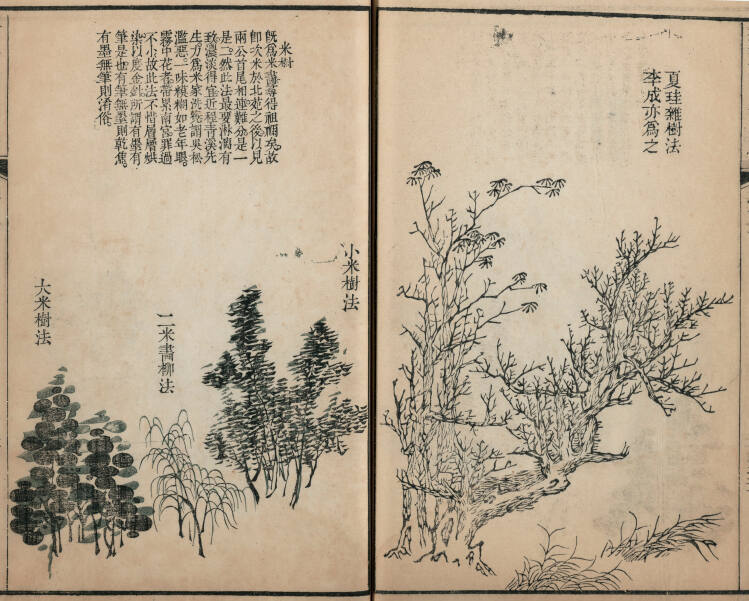 夏珪雜樹法
李成亦為之
米樹
既為米畫尋得祖禰矣。故
即次米於北苑之後以見
兩公首尾相連難分是一
是二。然此法最要淋漓有
致濃淡得宜近程青溪先
生方為米家洗冤謂吳松
濫惡一味模糊如老年眼。
霧中花者帶累南宮罪過
不小故此法不惜層層烘
染以度金針所謂有墨有
筆是也有筆無墨則乾焦。
有墨無筆則淆俗。
小米樹法
二米畫柳法
大米樹法